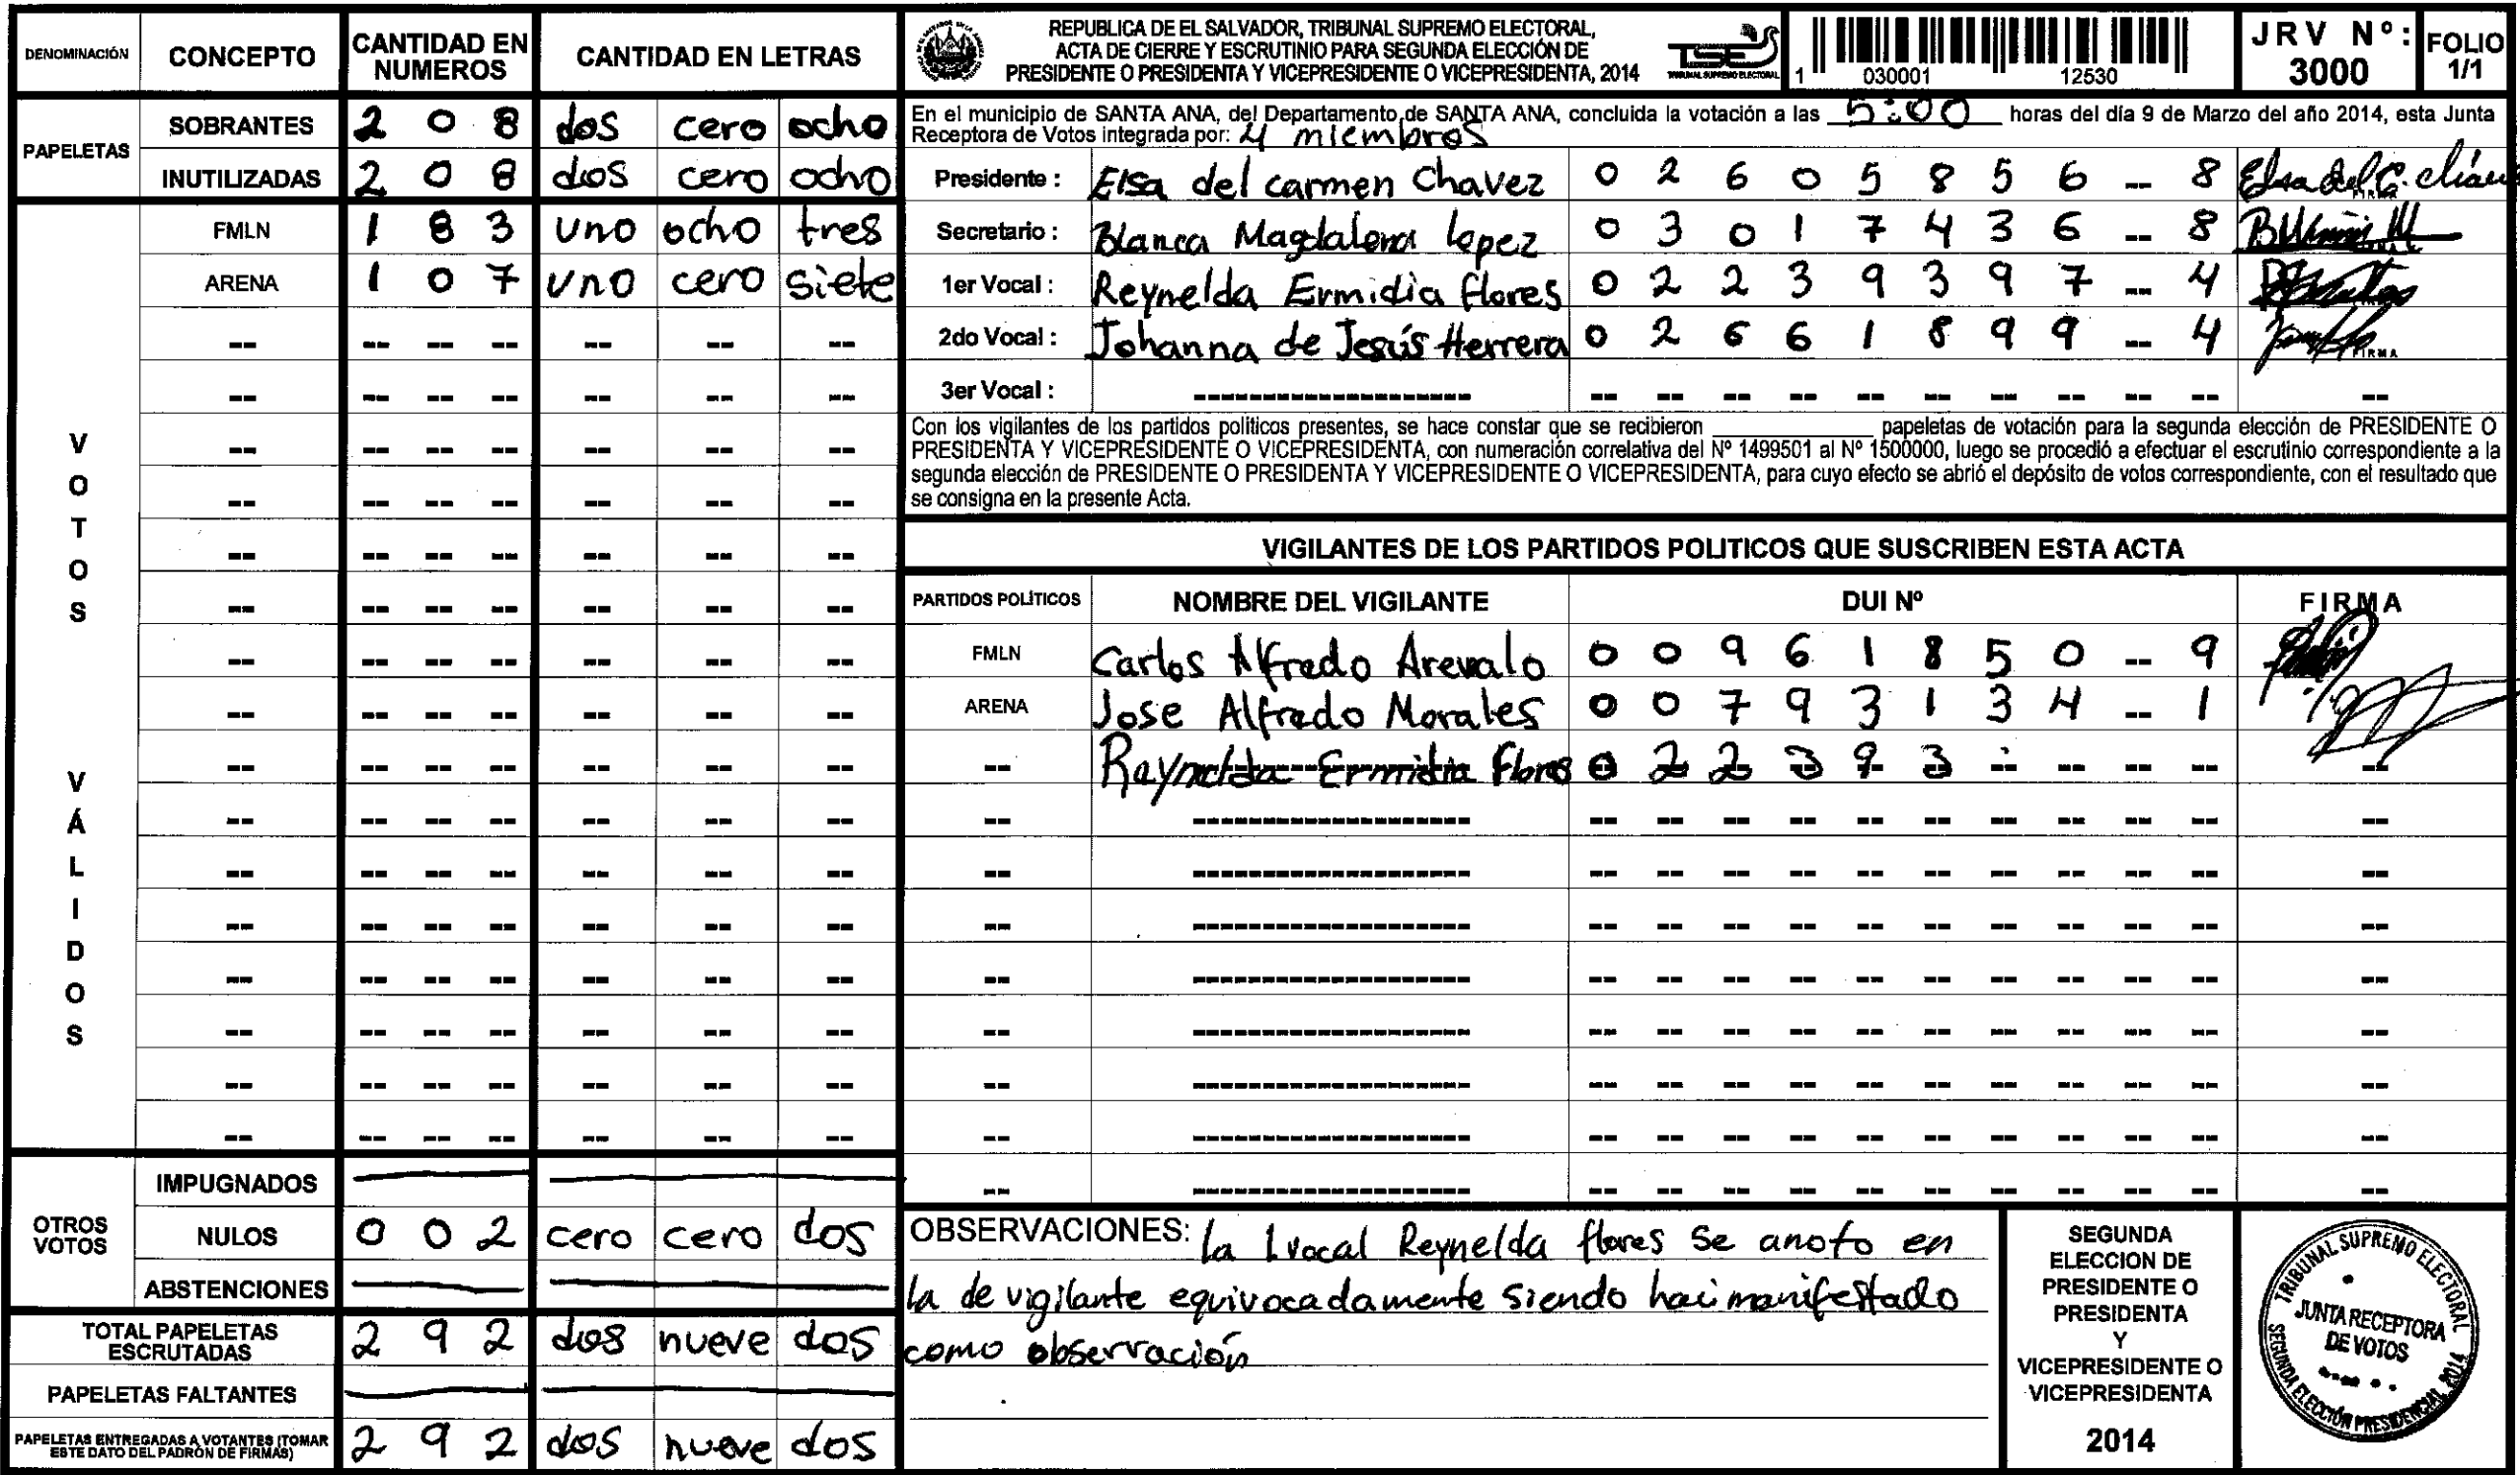 DENOMINACIÓN CONCEPTO CANTIDAD EN NUMEROS CANTIDAD EN LETRAS
PAPELETAS
SOBRANTES 2 0 8 dos cero ocho
INUTILIZADAS 2 0 8 dos cero ocho
VOTOS VÁLIDOS
FMLN 1 8 3 uno ocho tres
ARENA 1 0 7 uno cero siete
OTROS VOTOS
IMPUGNADOS
NULOS 0 0 2 cero cero dos
ABSTENCIONES
TOTAL PAPELETAS ESCRUTADAS 2 9 2 dos nueve dos
PAPELETAS FALTANTES
PAPELETAS ENTREGADAS A VOTANTES (TOMAR ESTE DATO DEL PADRÓN DE FIRMAS) 2 9 2 dos nueve dos
REPUBLICA DE EL SALVADOR, TRIBUNAL SUPREMO ELECTORAL,
ACTA DE CIERRE Y ESCRUTINIO PARA SEGUNDA ELECCIÓN DE
PRESIDENTE O PRESIDENTA Y VICEPRESIDENTE O VICEPRESIDENTA, 2014
TSE
TRIBUNAL SUPREMO ELECTORAL
1 030001 12530
JRV Nº: 3000
FOLIO 1/1
En el municipio de SANTA ANA, del Departamento de SANTA ANA, concluida la votación a las 5:00 horas del día 9 de Marzo del año 2014, esta Junta
Receptora de Votos integrada por: 4 miembros
Presidente : Elsa del carmen Chavez 0 2 6 0 5 8 5 6 -- 8
Secretario : Blanca Magdalena lopez 0 3 0 1 7 4 3 6 -- 8
1er Vocal : Reynelda Ermidia flores 0 2 2 3 9 3 9 7 -- 4
2do Vocal : Johanna de Jesús Herrera 0 2 6 6 1 8 9 9 -- 4 FIRMA
3er Vocal :
Con los vigilantes de los partidos políticos presentes, se hace constar que se recibieron ________ papeletas de votación para la segunda elección de PRESIDENTE O
PRESIDENTA Y VICEPRESIDENTE O VICEPRESIDENTA, con numeración correlativa del Nº 1499501 al Nº 1500000, luego se procedió a efectuar el escrutinio correspondiente a la
segunda elección de PRESIDENTE O PRESIDENTA Y VICEPRESIDENTE O VICEPRESIDENTA, para cuyo efecto se abrió el depósito de votos correspondiente, con el resultado que
se consigna en la presente Acta.
VIGILANTES DE LOS PARTIDOS POLITICOS QUE SUSCRIBEN ESTA ACTA
PARTIDOS POLÍTICOS NOMBRE DEL VIGILANTE DUI Nº FIRMA
FMLN Carlos Alfredo Arevalo 0 0 9 6 1 8 5 0 -- 9
ARENA Jose Alfredo Morales 0 0 7 9 3 1 3 4 -- 1
Raynelda Ermidia Flores 0 2 2 3 9 3
OBSERVACIONES: la 1 vocal Reynelda flores se anoto en
la de vigilante equivocadamente siendo manifestado
como observación
SEGUNDA
ELECCION DE
PRESIDENTE O
PRESIDENTA
Y
VICEPRESIDENTE O
VICEPRESIDENTA
2014
TRIBUNAL SUPREMO ELECTORAL
JUNTA RECEPTORA
DE VOTOS
SEGUNDA ELECCIÓN PRESIDENCIAL 2014